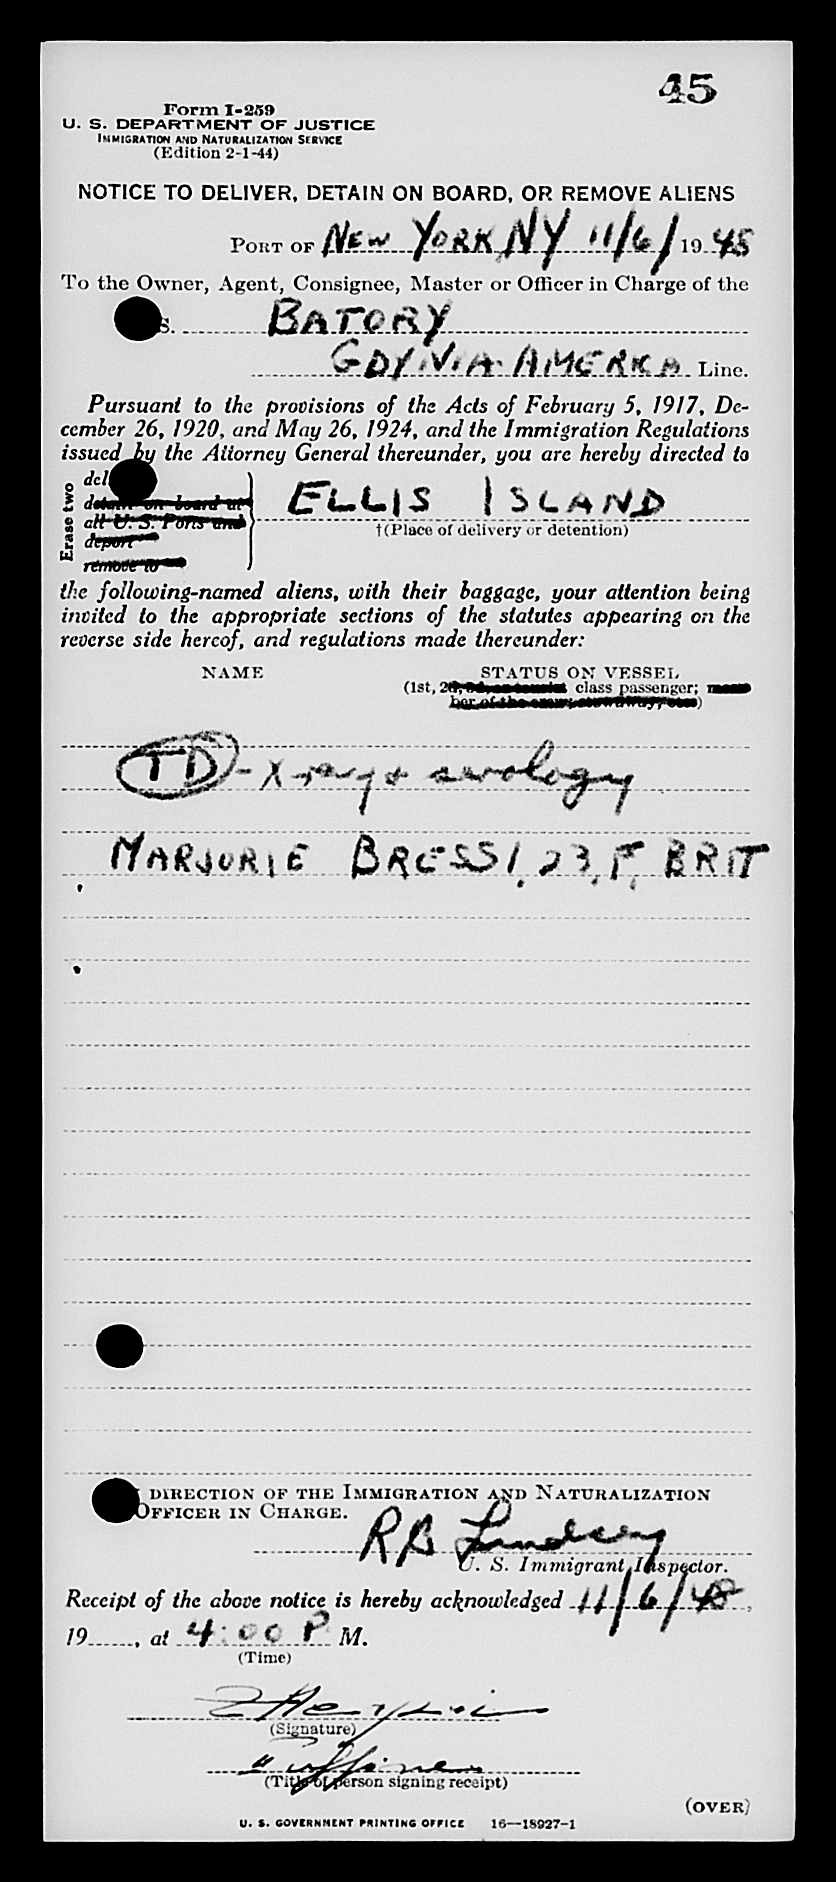 45
Form I-259
U. S. DEPARTMENT OF JUSTICE
IMMIGRATION AND NATURALIZATION SERVICE
(Edition 2-1-44)
NOTICE TO DELIVER, DETAIN ON BOARD, OR REMOVE ALIENS
PORT OF NEW YORK NY 11/6/ 19 48
To the Owner, Agent, Consignee, Master or Officer in Charge of the
S. BATORY
GDYNIA-AMERICA Line.
Pursuant to the provisions of the Acts of February 5, 1917, De-
cember 26, 1920, and May 26, 1924, and the Immigration Regulations
issued by the Attorney General thereunder, you are hereby directed to
Erase two
del
detain on board at
all U. S. Ports and
deport
remove to
ELLIS ISLAND
†(Place of delivery or detention)
the following-named aliens, with their baggage, your attention being
invited to the appropriate sections of the statutes appearing on the
reverse side hereof, and regulations made thereunder:
NAME STATUS ON VESSEL
(1st, 2d, 3d, or tourist class passenger; mem-
ber of the crew; stowaway; etc.)
TD - X-ray & serology
MARJORIE BRESSI, 23, F, BRIT
DIRECTION OF THE IMMIGRATION AND NATURALIZATION
OFFICER IN CHARGE.
RB Lindsey
U. S. Immigrant Inspector.
Receipt of the above notice is hereby acknowledged 11/6/48,
19, at 4:00 P M.
(Time)
(Signature)
(Title of person signing receipt)
(OVER)
U. S. GOVERNMENT PRINTING OFFICE 16—18927-1